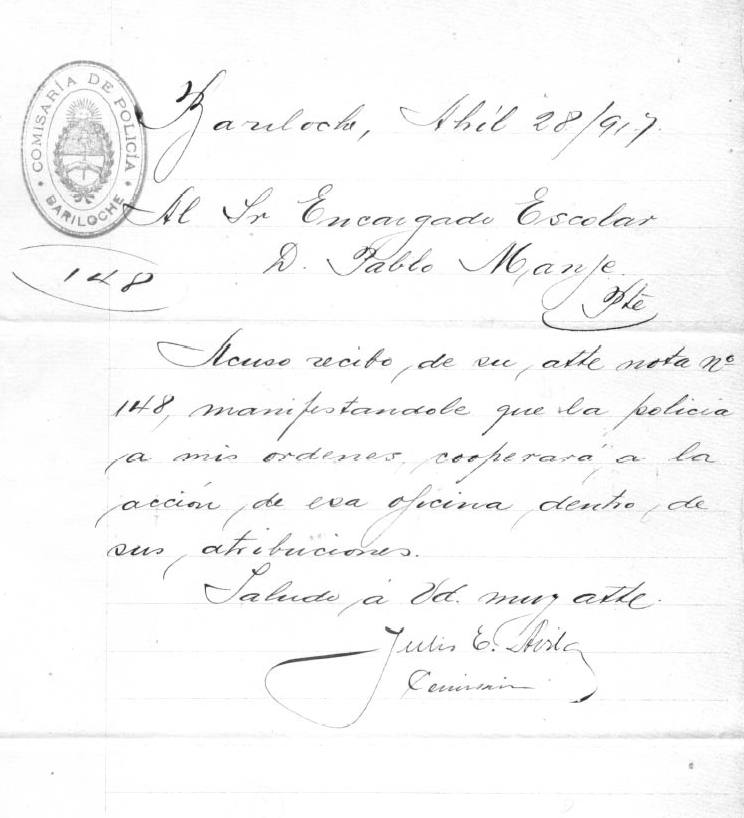 COMISARÍA DE POLICÍA
BARILOCHE
Bariloche, Abril 28/917.
Al Sr Encargado Escolar
148
D. Pablo Manje.
Pte
Acuso recibo, de su, atte nota nº
148, manifestandole que la policia
a mis ordenes, cooperará, a la
acción, de esa oficina, dentro, de
sus, atribuciones.
Saludo á Vd. muy atte.
Julio E. Avila
Comisario